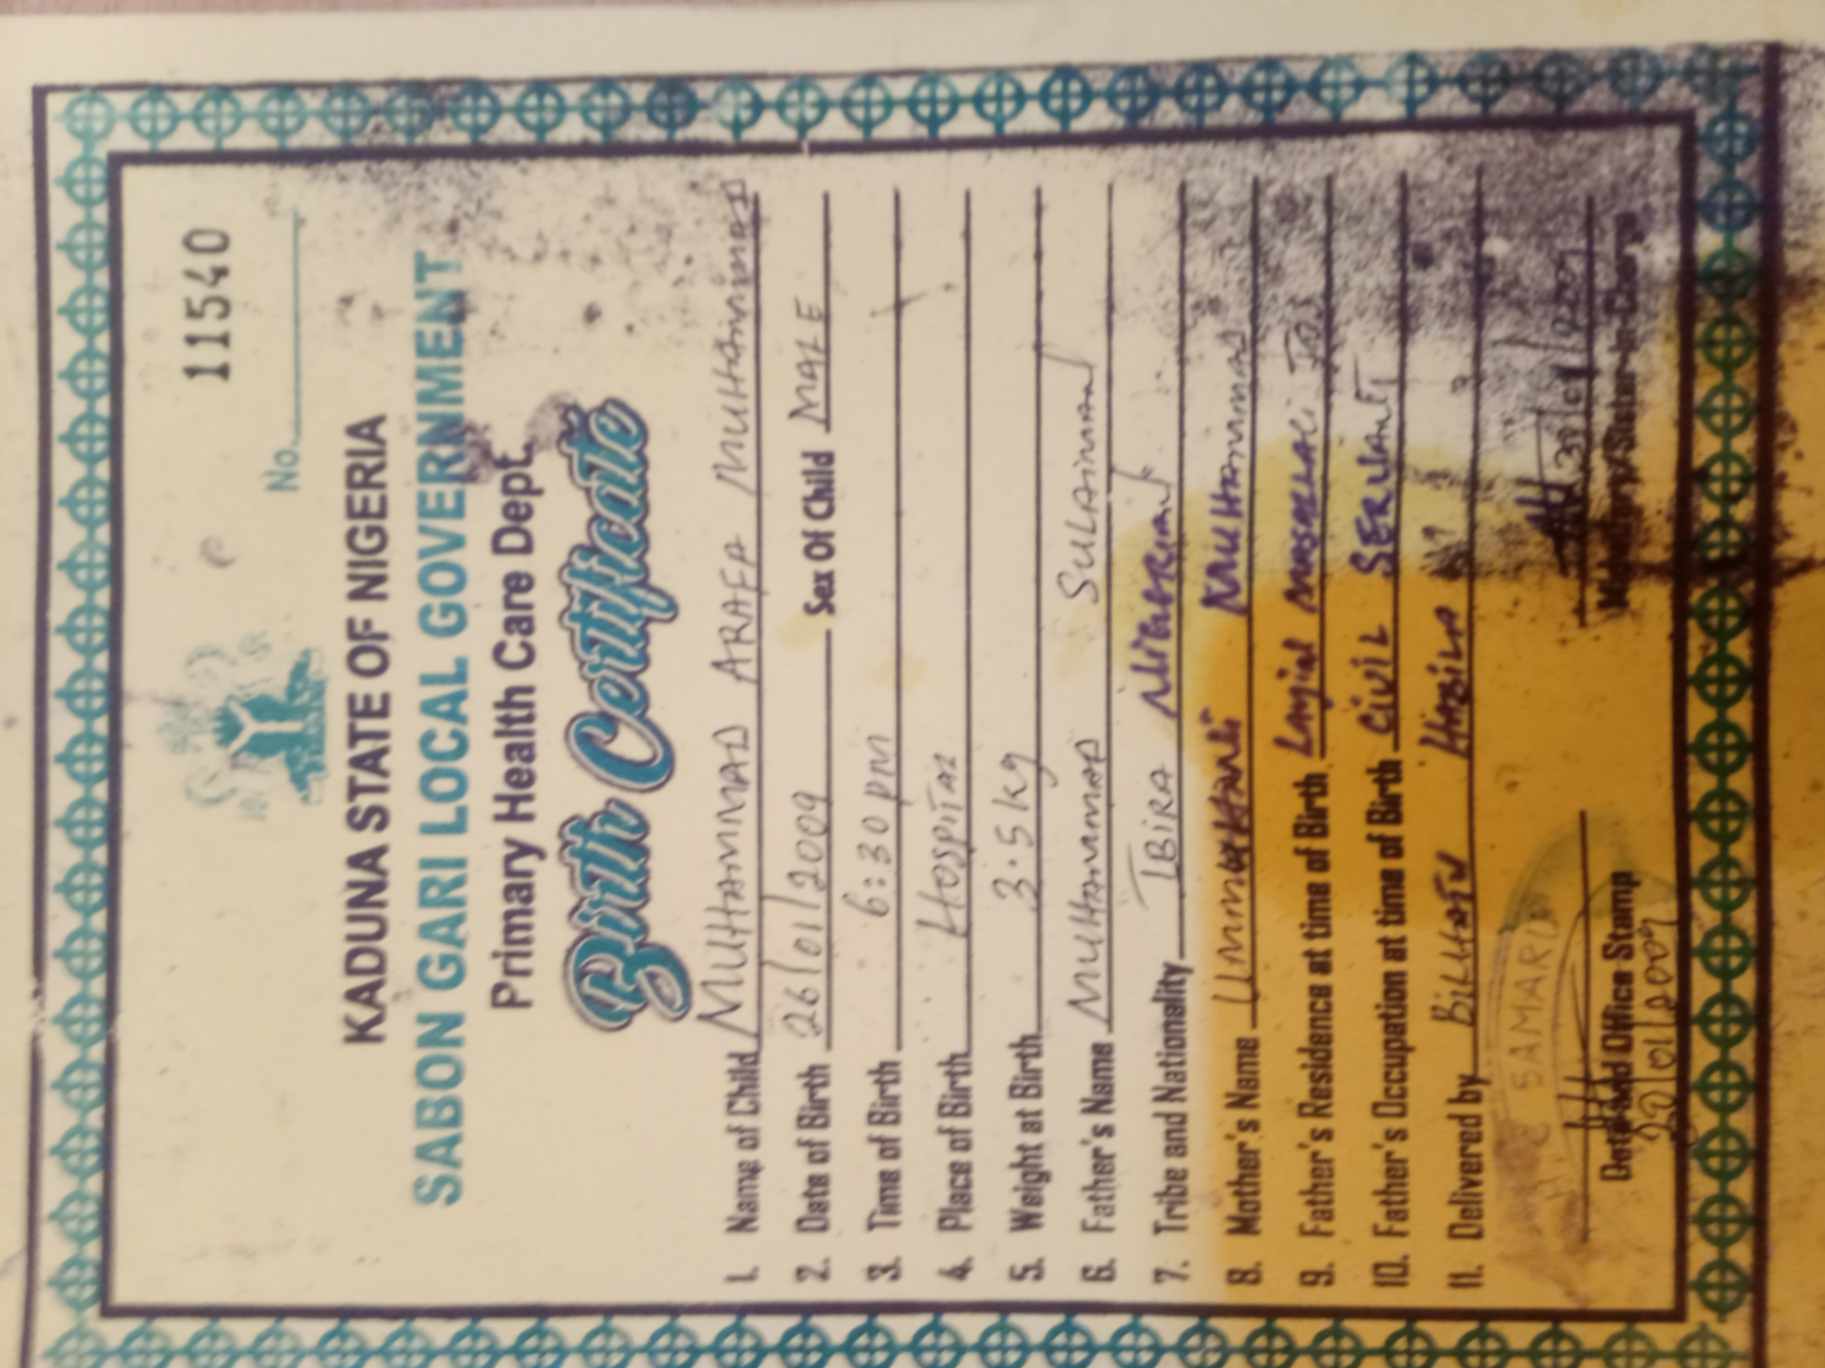 11540
No.
KADUNA STATE OF NIGERIA
SABON GARI LOCAL GOVERNMENT
Primary Health Care Dept.
Birth Certificate
1. Name of Child MUHAMMAD ARAFA MUHAMMAD
2. Date of Birth 26/01/2009 Sex Of Child MALE
3. Time of Birth 6:30pm
4. Place of Birth HOSPITAL
5. Weight at Birth 3.5kg
6. Father's Name MUHAMMAD SULAIMAN
7. Tribe and Nationality IBIRA NIGERIAN
8. Mother's Name MUHAMMAD
9. Father's Residence at time of Birth Jos
10. Father's Occupation at time of Birth CIVIL SERVANT
11. Delivered by HABILA
SAMARU
Date And Office Stamp
Midwifery/Sister-in-Charge